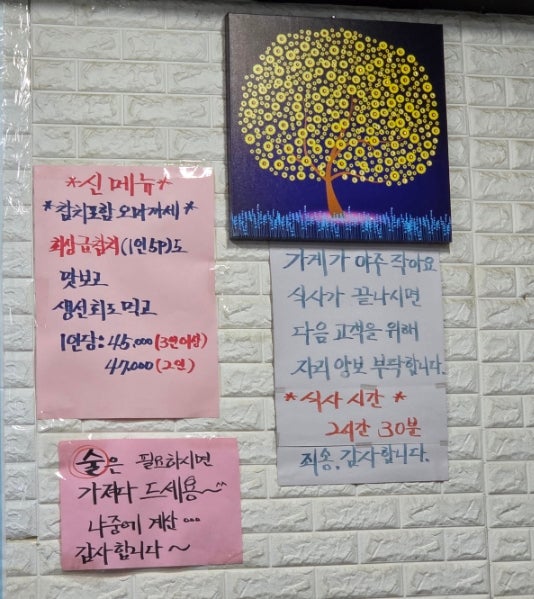 *신메뉴*
*참치포함 오마카세*
최상급참치(1인5P)도
맛보고
생선회도 먹고
1인당: 45,000 (3인이상)
47,000 (2인)
가게가 아주 작아요
식사가 끝나시면
다음 고객을 위해
자리 양보 부탁합니다.
*식사 시간*
2시간 30분
죄송, 감사합니다.
술은 필요하시면
가져다 드세용~^^
나중에 계산...
감사합니다~